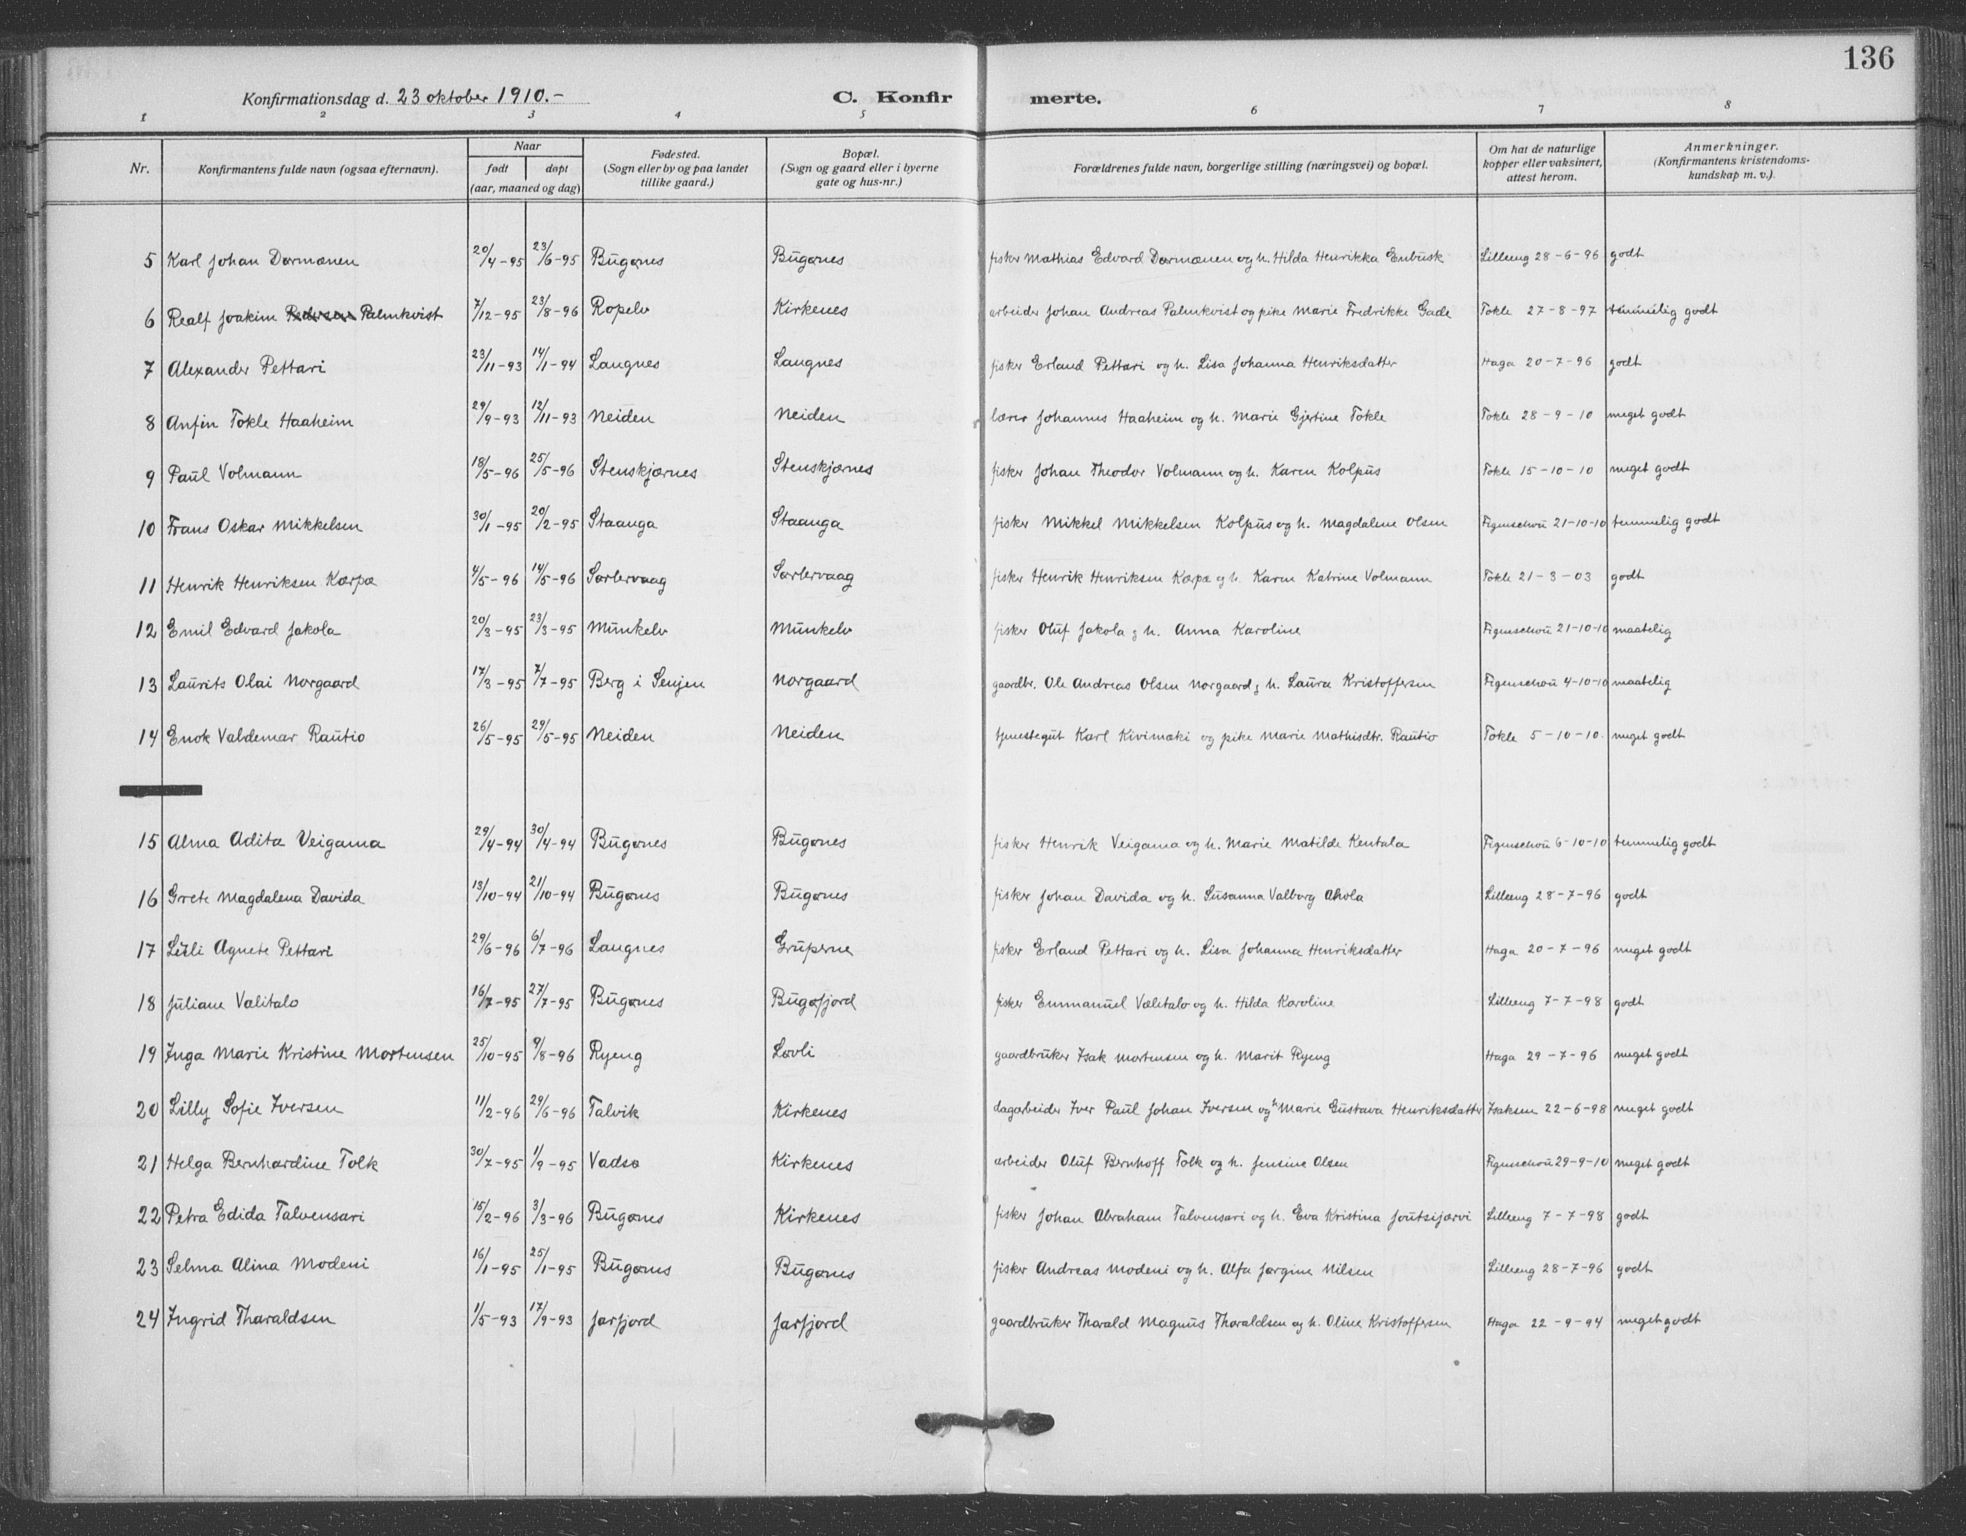 136
Konfirmationsdag d. 23 oktober 1910.-
C. Konfirmerte.
1 2 3 4 5 6 7 8
Nr. Konfirmantens fulde navn (ogsaa efternavn). Naar født døpt (aar, maaned og dag) Fødested. (Sogn eller by og paa landet tillike gaard.) Bopæl. (Sogn og gaard eller i byerne gate og hus-nr.) Forældrenes fulde navn, borgerlige stilling (næringsvei) og bopæl. Om hat de naturlige kopper eller vaksinert, attest herom. Anmerkninger. (Konfirmantens kristendomskundskap m. v.).
5 Karl Johan Dørmænen 20/4-95 23/6-95 Bugønes Bugønes fisker Mathias Edvard Dørmænen og h. Hilda Henrikka Enbusk Lilleeng 28-6-96 godt
6 Realf Joakim Palmkvist 7/12-95 23/8-96 Ropelv Kirkenes arbeider Johan Andreas Palmkvist og pike Marie Fredrikke Gade Tokle 27-8-97 temmelig godt
7 Alexander Pettari 23/11-93 14/1-94 Langnes Langnes fisker Erland Pettari og h. Lisa Johanna Henriksdatter Haga 20-7-96 godt
8 Anfin Tokle Haaheim 29/9-93 12/11-93 Neiden Neiden lærer Johannes Haaheim og h. Marie Gjertine Tokle Tokle 28-9-10 meget godt
9 Paul Volmann 18/5-96 25/5-96 Stenskjærnes Stenskjærnes fisker Johan Theodor Volmann og h. Karen Kolpus Tokle 15-10-10 meget godt
10 Frans Oskar Mikkelsen 30/1-95 20/2-95 Staanga Staanga fisker Mikkel Mikkelsen Kolpus og h. Magdalene Olsen Figenschou 21-10-10 temmelig godt
11 Henrik Henriksen Kærpæ 4/5-96 14/5-96 Sørlervaag Sørlervaag fisker Henrik Henriksen Kærpæ og h. Karen Katrine Volmann Tokle 21-3-03 godt
12 Emil Edvard Jakola 20/3-95 23/3-95 Munkelv Munkelv fisker Oluf Jakola og h. Anna Karoline Figenschou 21-10-10 maatelig
13 Laurits Olai Norgaard 17/3-95 7/7-95 Berg i Senjen Norgaard gaardbr. Ole Andreas Olsen Norgaard og h. Laura Kristoffersen Figenschou 4-10-10 maatelig
14 Enok Valdemar Rautio 26/5-95 29/5-95 Neiden Neiden tjenestegut Karl Kivimaki og pike Marie Mathisdtr. Rautio Tokle 5-10-10. meget godt
15 Alma Adita Veigama 29/4-94 30/4-94 Bugønes Bugønes fisker Henrik Veigama og h. Marie Matilde Kentala Figenschou 6-10-10 temmelig godt
16 Grete Magdalena Davida 13/10-94 21/10-94 Bugønes Bugønes fisker Johan Davida og h. Susanna Valborg Ahola Lilleeng 28-7-96 godt
17 Lisli Agnete Pettari 29/6-96 6/7-96 Langnes Gruperne fisker Erland Pettari og h. Lisa Johanna Henriksdatter Haga 20-7-96 meget godt
18 Juliane Vælitalo 16/7-95 27/7-95 Bugønes Bugøfjord fisker Emmanuel Vælitalo og h. Hilda Karoline Lilleeng 7-7-98 godt
19 Inga Marie Kristine Mortensen 25/10-95 9/8-96 Ryeng Løvli gaardbruker Isak Mortensen og h. Marit Ryeng Haga 29-7-96 meget godt
20 Lilly Sofie Iversen 11/2-96 29/6-96 Talvik Kirkenes dagarbeider Iver Paul Johan Iversen og h. Marie Gustava Henriksdatter Isaksen 22-6-98 meget godt
21 Helga Bernhardine Tolk 30/7-95 1/9-95 Vadsø Kirkenes arbeider Oluf Bernhoff Tolk og h. Jensine Olsen Figenschou 29-9-10 meget godt
22 Petra Edida Talvensari 15/2-96 3/3-96 Bugønes Kirkenes fisker Johan Abraham Talvensari og h. Eva Kristina Joutsijærvi Lilleeng 7-7-98 godt
23 Selma Alina Modeni 16/1-95 25/1-95 Bugønes Bugønes fisker Andreas Modeni og h. Alfa Jørgine Nilsen Lilleeng 28-7-96 godt
24 Ingrid Tharaldsen 1/5-93 17/9-93 Jarfjord Jarfjord gaardbruker Tharald Magnus Tharaldsen og h. Oline Kristoffersen Haga 22-9-94 meget godt